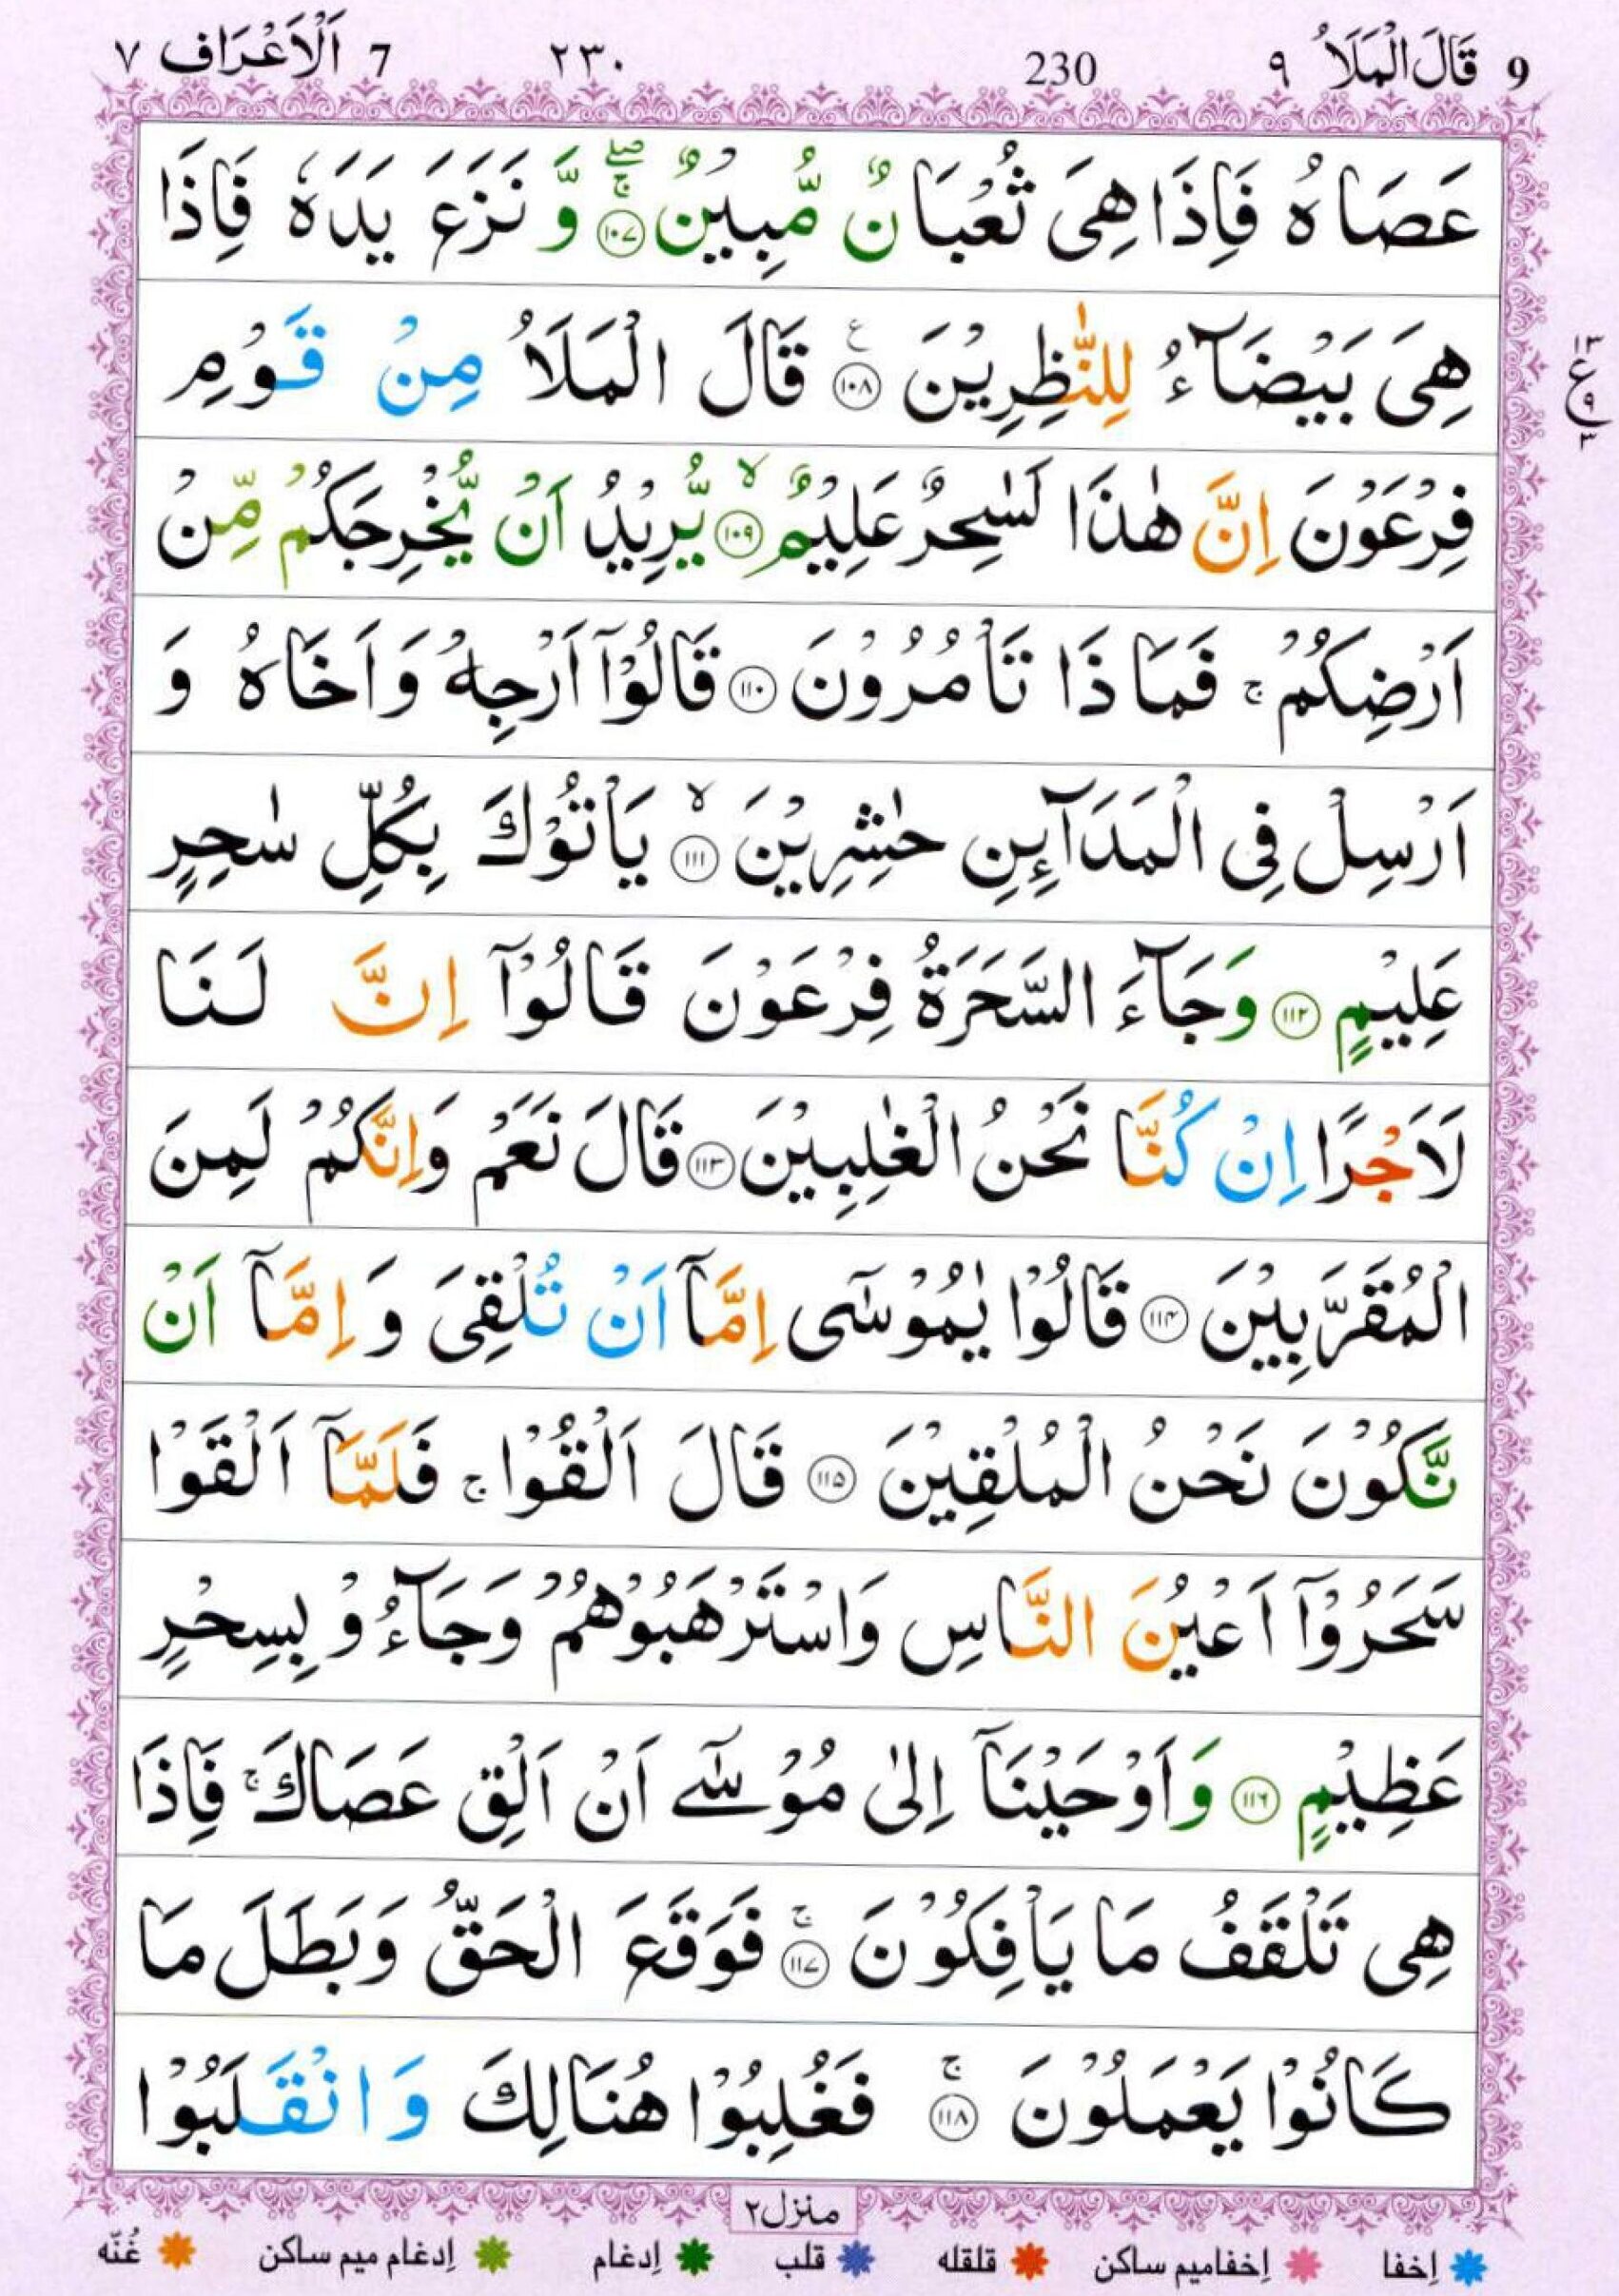 9 قَالَ الْمَلَاُ ٩ 230 ٢٣٠ 7 اَلْاَعْرَاف ٧
عَصَاهُ فَاِذَا هِىَ ثُعْبَانٌ مُّبِيْنٌ ۚۖ ﴿١٠٧﴾ وَّ نَزَعَ يَدَهٗ فَاِذَا
هِىَ بَيْضَآءُ لِلنّٰظِرِيْنَ ﴿١٠٨﴾ ع قَالَ الْمَلَاُ مِنْ قَوْمِ
١٣
ع
٩
٣
فِرْعَوْنَ اِنَّ هٰذَا لَسٰحِرٌ عَلِيْمٌ ۙ ﴿١٠٩﴾ يُّرِيْدُ اَنْ يُّخْرِجَكُمْ مِّنْ
اَرْضِكُمْ ۚ فَمَا ذَا تَاْمُرُوْنَ ﴿١١٠﴾ قَالُوْۤا اَرْجِهْ وَاَخَاهُ وَ
اَرْسِلْ فِى الْمَدَآئِنِ حٰشِرِيْنَ ۙ ﴿١١١﴾ يَاْتُوْكَ بِكُلِّ سٰحِرٍ
عَلِيْمٍ ﴿١١٢﴾ وَجَآءَ السَّحَرَةُ فِرْعَوْنَ قَالُوْۤا اِنَّ لَنَا
لَاَجْرًا اِنْ كُنَّا نَحْنُ الْغٰلِبِيْنَ ﴿١١٣﴾ قَالَ نَعَمْ وَاِنَّكُمْ لَمِنَ
الْمُقَرَّبِيْنَ ﴿١١٤﴾ قَالُوْا يٰمُوْسٰٓى اِمَّاۤ اَنْ تُلْقِىَ وَ اِمَّاۤ اَنْ
نَّكُوْنَ نَحْنُ الْمُلْقِيْنَ ﴿١١٥﴾ قَالَ اَلْقُوْا ۚ فَلَمَّاۤ اَلْقَوْا
سَحَرُوْۤا اَعْيُنَ النَّاسِ وَاسْتَرْهَبُوْهُمْ وَجَآءُوْ بِسِحْرٍ
عَظِيْمٍ ﴿١١٦﴾ وَ اَوْحَيْنَاۤ اِلٰى مُوْسٰٓے اَنْ اَلْقِ عَصَاكَ ۚ فَاِذَا
هِى تَلْقَفُ مَا يَاْفِكُوْنَ ۚ ﴿١١٧﴾ فَوَقَعَ الْحَقُّ وَبَطَلَ مَا
كَانُوْا يَعْمَلُوْنَ ۚ ﴿١١٨﴾ فَغُلِبُوْا هُنَالِكَ وَانْقَلَبُوْا
منزل٢
اِخفا اِخفامیم ساکن قلقله قلب اِدغام اِدغام میم ساکن غُنّه